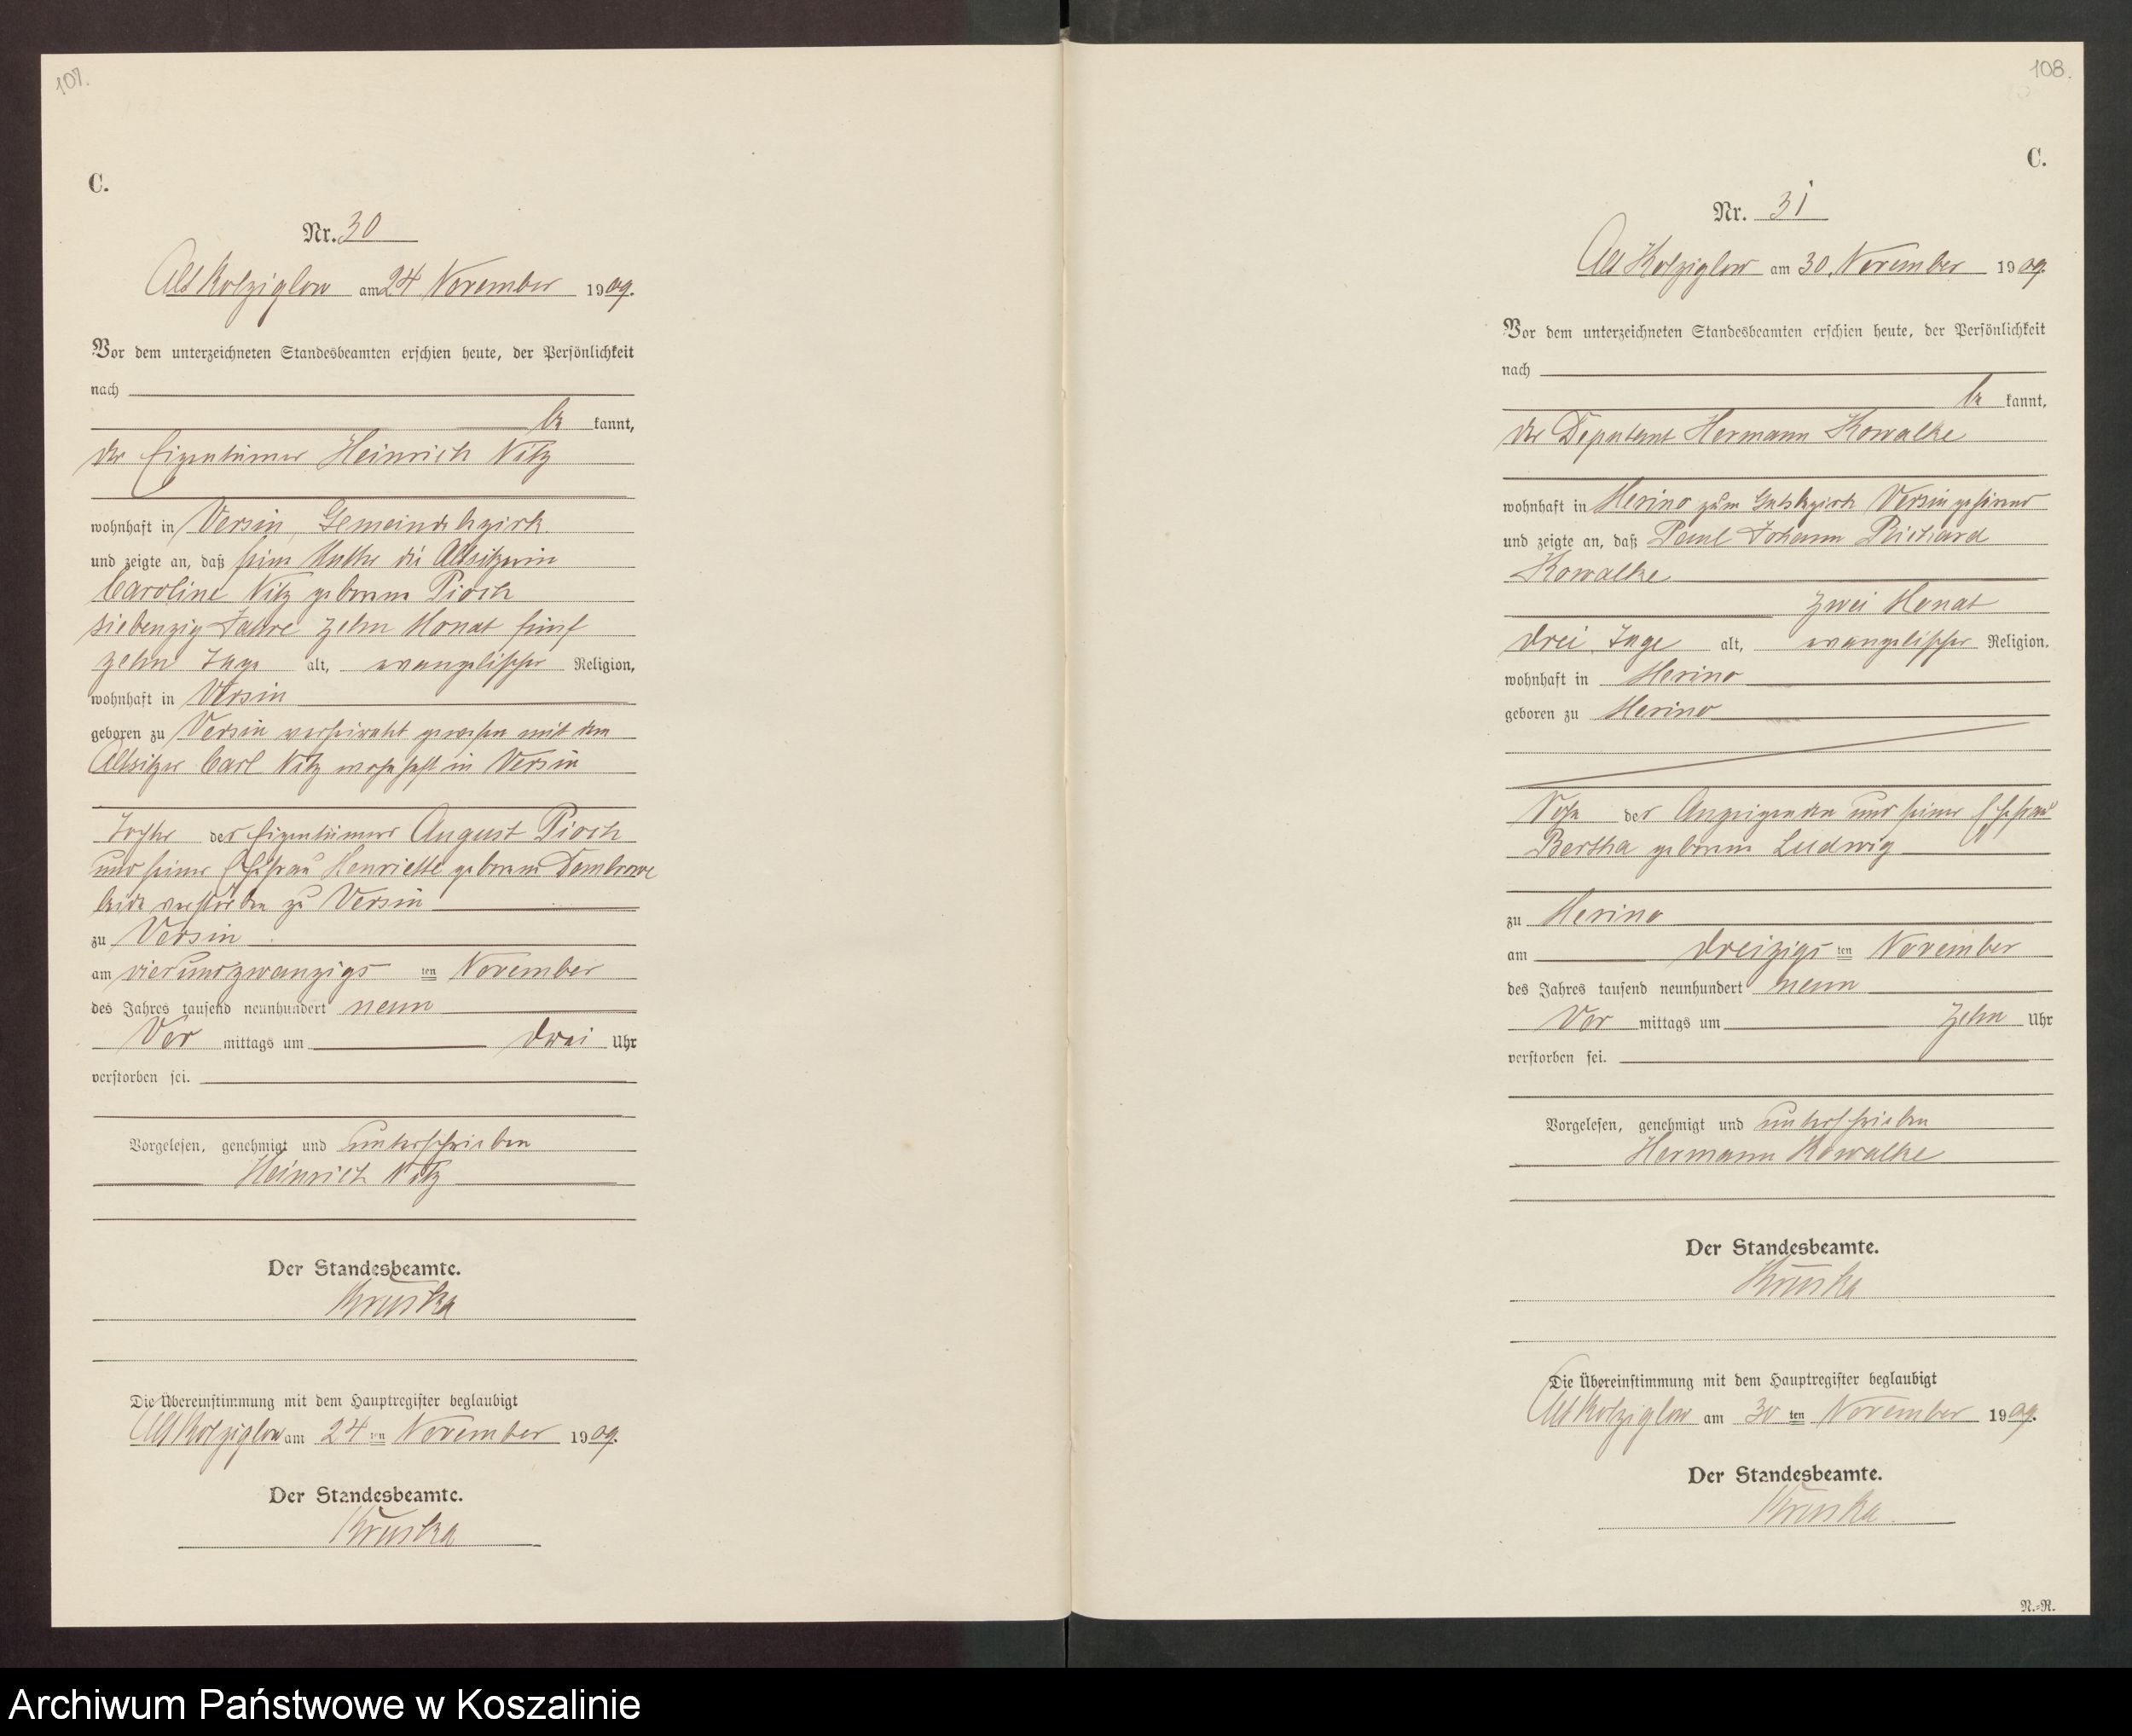 107.
C.
Nr. 30
Alt Kolziglow am 24 November 1909.
Vor dem unterzeichneten Standesbeamten erschien heute, der Persönlichkeit
nach
be kannt,
der Eigentümer Heinrich Nitz
wohnhaft in Versin, Gemeindebezirk
und zeigte an, daß seine Mutter die Altsitzerin
Caroline Nitz geborene Pioch
siebenzig Jahre zehn Monat fünf
zehn Tage alt, evangelischer Religion,
wohnhaft in Versin
geboren zu Versin verheiratet gewesen mit dem
Altsitzer Carl Nitz wohnhaft in Versin
Tochter des Eigentümers August Pioch
und seiner Ehefrau Henriette geborene Dombrowe
beide verstorben zu Versin
zu Versin
am vierundzwanzigs ten November
des Jahres tausend neunhundert neun
Vor mittags um drei Uhr
verstorben sei.
Vorgelesen, genehmigt und unterschrieben
Heinrich Nitz
Der Standesbeamte.
Kruska
Die Übereinstimmung mit dem Hauptregister beglaubigt
Alt Kolziglow am 24 ten November 1909.
Der Standesbeamte.
Kruska
108.
C.
Nr. 31
Alt Kolziglow am 30. November 1909.
Vor dem unterzeichneten Standesbeamten erschien heute, der Persönlichkeit
nach
be kannt,
der Deputant Hermann Kowalke
wohnhaft in Merino zum Gutsbezirk Versin gehörend
und zeigte an, daß Paul Johann Richard
Kowalke
zwei Monat
drei Tage alt, evangelischer Religion.
wohnhaft in Merino
geboren zu Merino
Sohn des Anzeigenden und seiner Ehefrau
Bertha geborene Ludwig
zu Merino
am dreizigs ten November
des Jahres tausend neunhundert neun
Vor mittags um zehn Uhr
verstorben sei.
Vorgelesen, genehmigt und unterschrieben
Hermann Kowalke
Der Standesbeamte.
Kruska
Die Übereinstimmung mit dem Hauptregister beglaubigt
Alt Kolziglow am 30 ten November 1909.
Der Standesbeamte.
Kruska
N.=R.
Archiwum Państwowe w Koszalinie